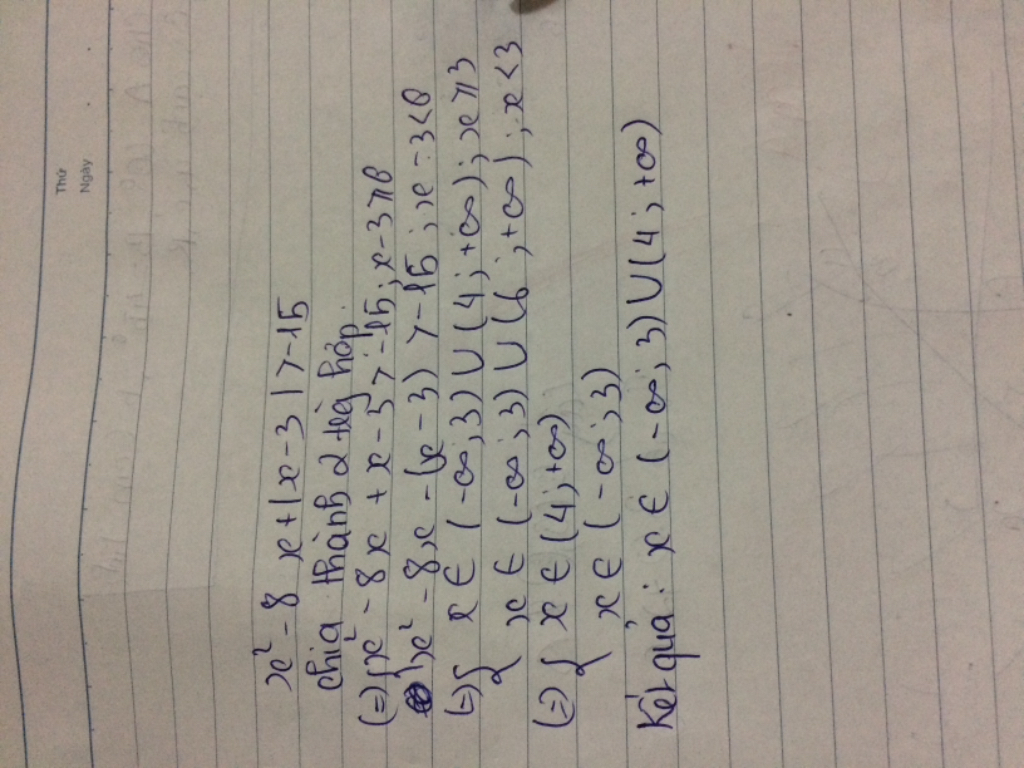 Thứ
Ngày
x² - 8x + |x - 3| > -15
chia thành 2 trường hợp.
(=) { x² - 8x + x - 3 > -15; x - 3 ≥ 0
{ x² - 8x - (x - 3) > -15; x - 3 < 0
(=) { x ∈ (-∞; 3) ∪ (4; +∞); x ≥ 3
{ x ∈ (-∞; 3) ∪ (6; +∞); x < 3
(=) { x ∈ (4; +∞)
{ x ∈ (-∞; 3)
Kết quả: x ∈ (-∞; 3) ∪ (4; +∞)